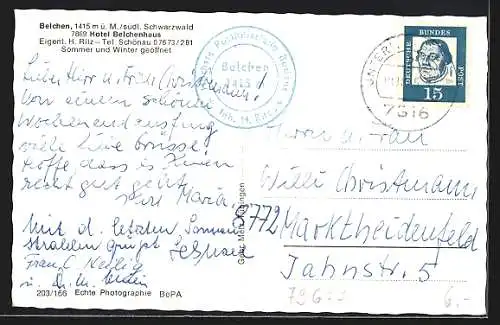 Belchen, 1415 m ü. M./südl. Schwarzwald
7869 Hotel Belchenhaus
Eigent. H. Rilz – Tel. Schönau 07673/281
Sommer und Winter geöffnet
Belchen
1415
Inh. H. Rilz
DEUTSCHE BUNDESPOST
15
7816
Lieber Herr u. Frau Christmann!
Von einem schönen
Wochenendausflug
viele liebe Grüsse
hoffe dass es Ihnen
recht gut geht
Ihre Maria.
Mit d. letzten Sonnen
strahlen grüßt
Frau
u.
Herrn u. Frau
Willi Christmann
8772 Marktheidenfeld
Jahnstr. 5
Gebr. Metz Tübingen
203/166 Echte Photographie BePA
6.-